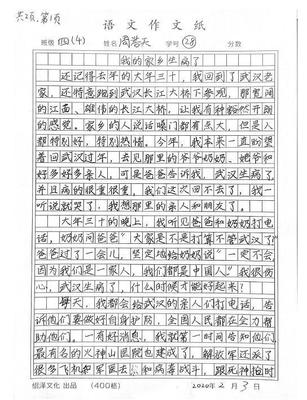 共2页,第1页
语文作文纸
班级 四(4) 姓名 周浩天 学号 28 分数
我的家乡生病了
还记得去年的大年三十,我回到了武汉老
家,还特意跑到武汉长江大桥下参观,那宽阔
的江面、雄伟的长江大桥,让我有种豁然开朗
的感觉。家乡的人说话嗓门都有点大,但是人
都特别好,特别热情。今年,我本来一直盼望
着回武汉过年,去见那里的爷爷奶奶、姥爷和
好多好多亲人,可是爸爸告诉我,武汉生病了,
并且病的很重很重,我们这次回不去了,我一
听说就哭了,我想那里的亲人和朋友了。
大年三十的晚上,我听见爸爸和奶奶打电
话,奶奶问爸爸“大家是不是打算不管武汉了?”
爸爸过了一会儿,坚定地给奶奶说“一定不会,
因为我们是一家人,我们都是中国人”我很伤
心,武汉生病了,什么时候才能好起来?
每天,我都会给武汉的亲人们打电话,告
诉他们要做好自身护防,全国人民都在全力帮
助他们。一有好消息,我就第一时间告知他们,
最有名的火神山医院也建成了,解放军还派了
很多飞机和军医去和病毒战斗,跟死神抢时
绍泽文化 出品 (400格) 2020年2月3日